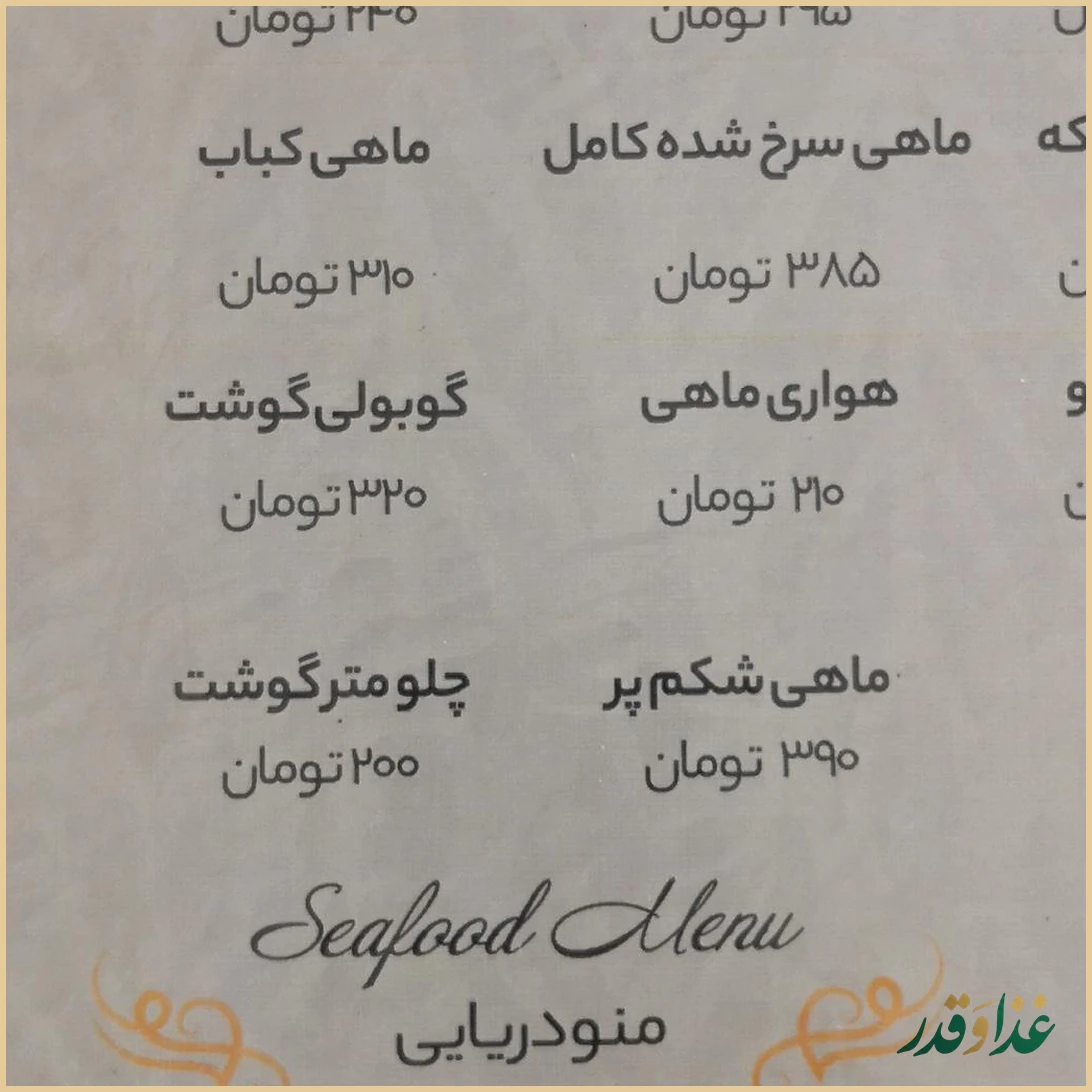 ۲۹۵ تومان ۲۴۰ تومان
که ماهی سرخ شده کامل ماهی کباب
۳۸۵ تومان ۳۱۰ تومان
و هواری ماهی گوبولی گوشت
۲۱۰ تومان ۳۲۰ تومان
ماهی شکم پر چلو متر گوشت
۳۹۰ تومان ۲۰۰ تومان
Seafood Menu
منو دریایی
غذا وَ قدر